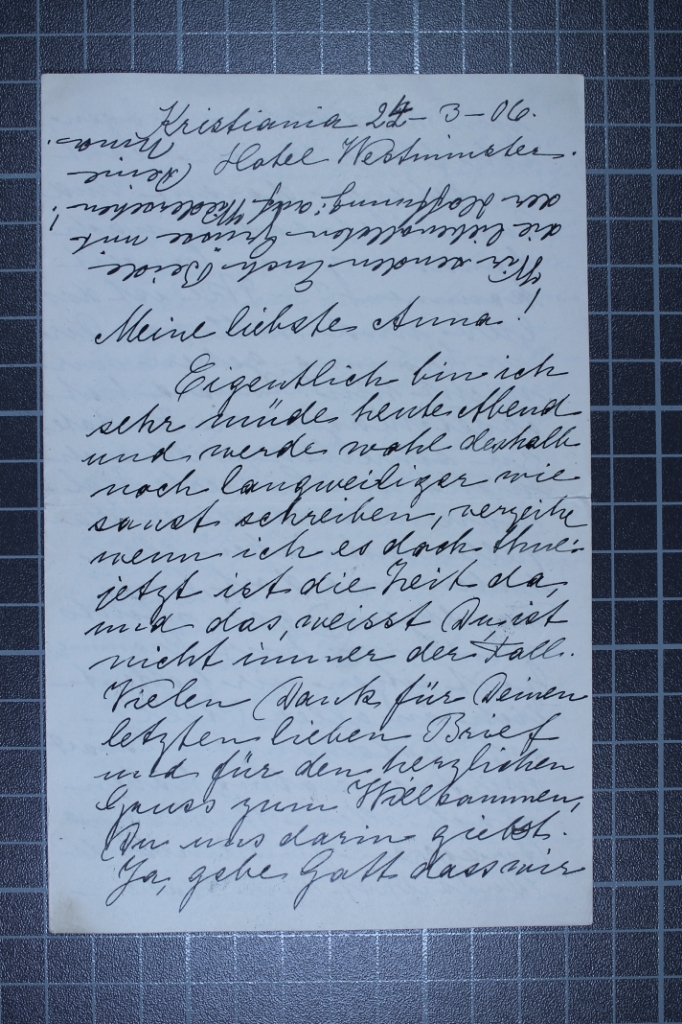 Kristiania 24-3-06.
Hotel Westminster.
Meine liebste Anna!
Eigentlich bin ich
sehr müde heute Abend
und werde wohl deshalb
noch langweiliger wie
sonst schreiben, verzeihe
wenn ich es doch thue:
jetzt ist die Zeit da,
und das, weisst Du, ist
nicht immer der Fall.
Vielen Dank für Deinen
letzten lieben Brief
und für den herzlichen
Gruss zum Willkommen,
Du uns darin giebst.
Ja, gebe Gott dass wir
Wir senden Euch Beide
die liebevollsten Grüsse mit
der Hoffnung: auf Wiedersehen!
Deine
Nina.